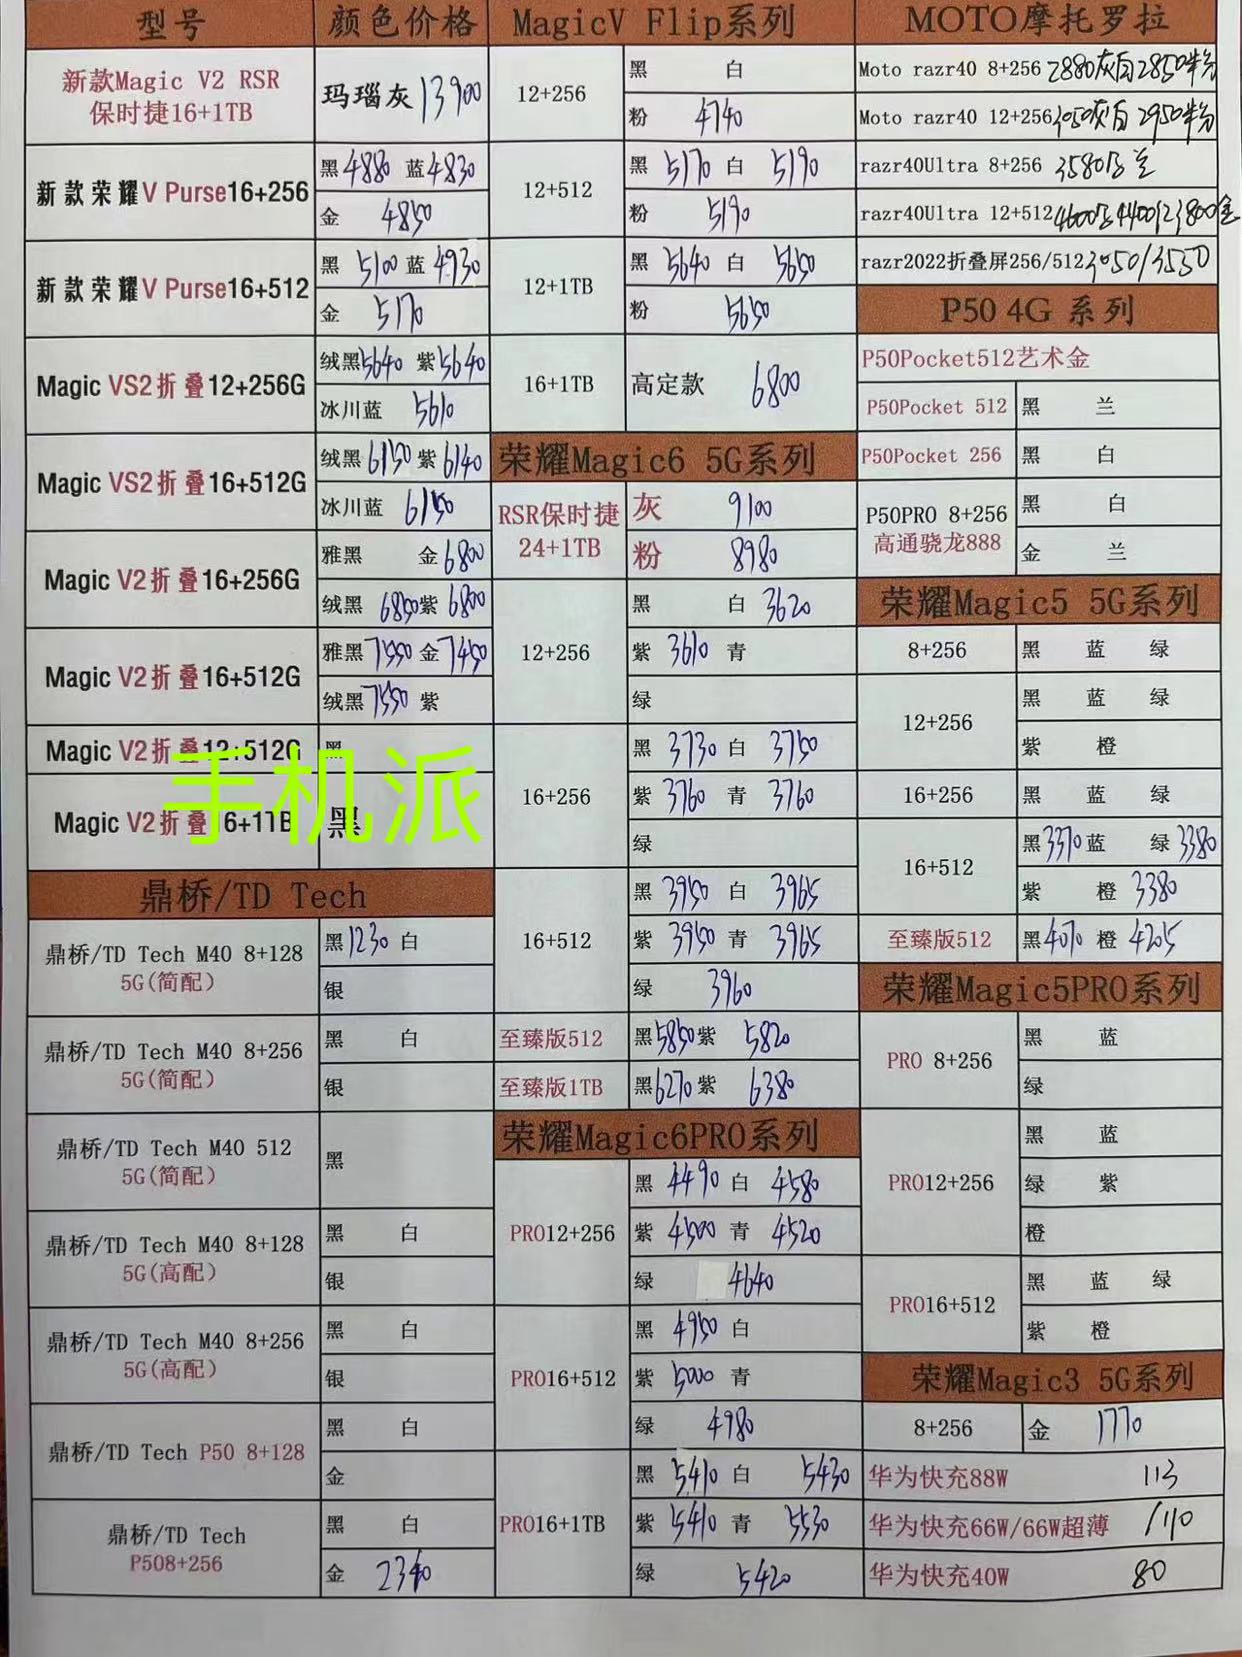 型号 颜色价格
新款Magic V2 RSR
保时捷16+1TB
玛瑙灰 13900
新款荣耀V Purse16+256
黑 4880 蓝 4830
金 4850
新款荣耀V Purse16+512
黑 5100 蓝 4930
金 5170
Magic VS2折叠12+256G
绒黑 5640 紫 5640
冰川蓝 5610
Magic VS2折叠16+512G
绒黑 6150 紫 6140
冰川蓝 6150
Magic V2折叠16+256G
雅黑 金 6800
绒黑 6850 紫 6800
Magic V2折叠16+512G
雅黑 7550 金 7450
绒黑 7550 紫
Magic V2折叠12+512G
黑
Magic V2折叠16+1TB
黑
手机派
鼎桥/TD Tech
鼎桥/TD Tech M40 8+128
5G(简配)
黑 1230 白
银
鼎桥/TD Tech M40 8+256
5G(简配)
黑 白
银
鼎桥/TD Tech M40 512
5G(简配)
黑
鼎桥/TD Tech M40 8+128
5G(高配)
黑 白
银
鼎桥/TD Tech M40 8+256
5G(高配)
黑 白
银
鼎桥/TD Tech P50 8+128
黑 白
金
鼎桥/TD Tech
P508+256
黑 白
金 2340
MagicV Flip系列
12+256
黑 白
粉 4740
12+512
黑 5170 白 5190
粉 5190
12+1TB
黑 5640 白 5650
粉 5650
16+1TB
高定款 6800
荣耀Magic6 5G系列
RSR保时捷
24+1TB
灰 9100
粉 8980
12+256
黑 白 3620
紫 3610 青
绿
16+256
黑 3730 白 3750
紫 3760 青 3760
绿
16+512
黑 3950 白 3965
紫 3950 青 3965
绿 3960
至臻版512
黑 5850 紫 5820
至臻版1TB
黑 6270 紫 6380
荣耀Magic6PRO系列
PRO12+256
黑 4490 白 4580
紫 4500 青 4520
绿 4640
PRO16+512
黑 4950 白
紫 5000 青
绿 4980
PRO16+1TB
黑 5410 白 5430
紫 5410 青 5530
绿 5420
MOTO摩托罗拉
Moto razr40 8+256 2880灰白 2850粉
Moto razr40 12+256 3050灰白 2950粉
razr40Ultra 8+256 3580 兰
razr40Ultra 12+512 4600 4400 3800金
razr2022折叠屏256/512 3050/3550
P50 4G 系列
P50Pocket512艺术金
P50Pocket 512
黑 兰
P50Pocket 256
黑 白
P50PRO 8+256
高通骁龙888
黑 白
金 兰
荣耀Magic5 5G系列
8+256
黑 蓝 绿
12+256
黑 蓝 绿
紫 橙
16+256
黑 蓝 绿
16+512
黑 3370 蓝 绿 3380
紫 橙 3380
至臻版512
黑 4070 橙 4205
荣耀Magic5PRO系列
PRO 8+256
黑 蓝
绿
PRO12+256
黑 蓝
绿 紫
橙
PRO16+512
黑 蓝 绿
紫 橙
荣耀Magic3 5G系列
8+256
金 1770
华为快充88W 113
华为快充66W/66W超薄 /110
华为快充40W 80